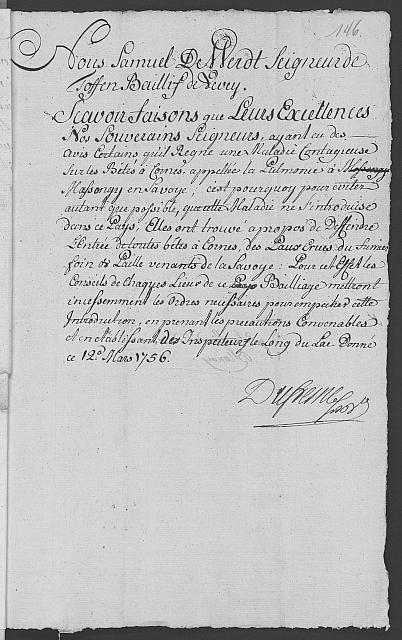 146.
Nous Samuel De Werdt Seigneur de
Toffen Baillif de Vevey.
Scavoir faisons que Leurs Excellences
Nos Souverains Seigneurs, ayant eu des
avis Certains qu'il Regne une Maladie Contagieuse
sur les Bêtes à Cornes, appellée la Pulmonie à Massongy
Massongy en Savoye; cest pourquoy pour éviter
autant que possible, que cette Maladie ne s'introduise
dans ce Pays, Elles ont trouvé apropos de Deffendre
L'Entrée de toutes bêtes à Cornes, des Peaux Crues du Fumier
foin & Paille venants de la Savoye; Pour cet Effet les
Conseils de Chaques Lieux de ce Pays Bailliage mettront
incessemment les Ordres necessaires pour empecher cette
Introduction, en prenant les precautions Convenables
et en establissant des Inspecteurs le Long du Lac Donné
ce 12e Mars 1756.
Dufresne